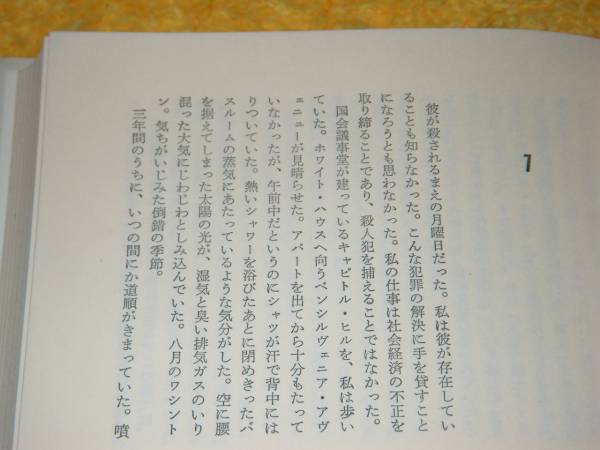 1
彼が殺されるまえの月曜日だった。私は彼が存在してい
ることも知らなかった。こんな犯罪の解決に手を貸すこと
になろうとも思わなかった。私の仕事は社会経済の不正を
取り締ることであり、殺人犯を捕えることではなかった。
国会議事堂が建っているキャピトル・ヒルを、私は歩い
ていた。ホワイト・ハウスへ向うペンシルヴェニア・アヴ
ェニューが見晴らせた。アパートを出てから十分もたって
いなかったが、午前中だというのにシャツが汗で背中には
りついていた。熱いシャワーを浴びたあとに閉めきったバ
スルームの蒸気にあたっているような気分がした。空に腰
を据えてしまった太陽の光が、湿気と臭い排気ガスのいり
混った大気にじわじわとしみ込んでいた。八月のワシント
ン。気ちがいじみた倒錯の季節。
三年間のうちに、いつの間にか道順がきまっていた。噴